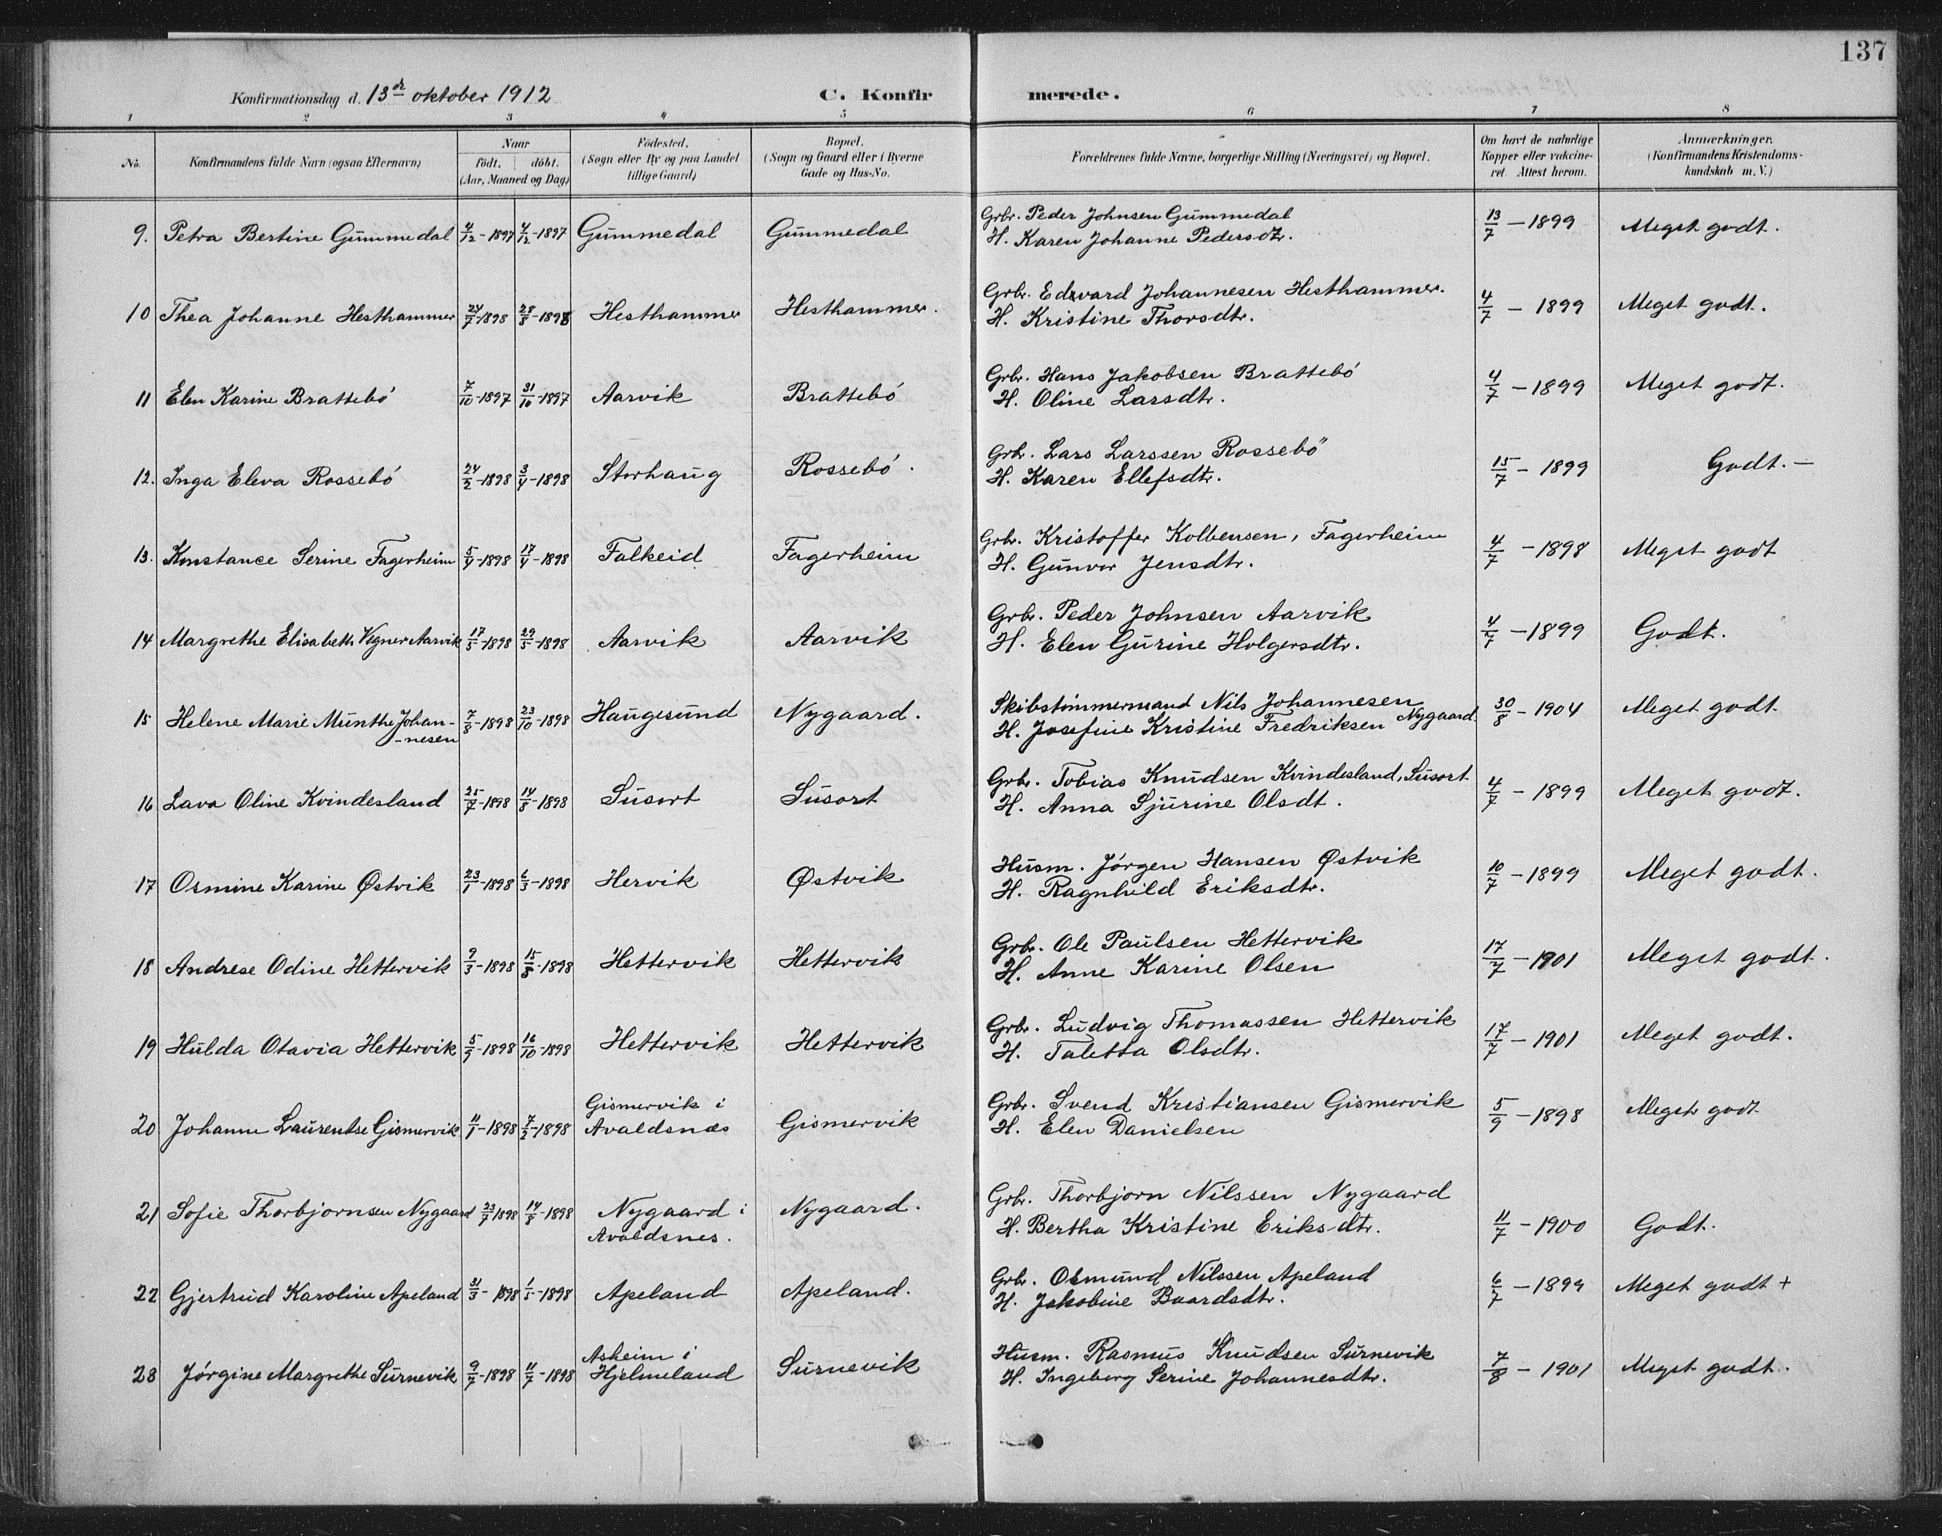 137
Konfirmationsdag d. 13de oktober 1912 C. Konfirmerede.
1 2 3 4 5 6 7 8
No. Konfirmandens fulde Navn (ogsaa Efternavn) Naar født. døbt. (Aar, Maaned og Dag) Fødested. (Sogn eller By og paa Landet tillige Gaard) Bopæl. (Sogn og Gaard eller i Byerne Gade og Hus-No. Forældrenes fulde Navne, borgerlige Stilling (Næringsvei) og Bopæl. Om havt de naturlige Kopper eller vakcineret. Attest herom. Anmærkninger. (Konfirmandens Kristendomskundskab m. V.)
9. Petra Bertine Gummedal 4/12-1897 4/12-1897 Gummedal Gummedal Grbr. Peder Johnsen Gummedal 13/7 - 1899 Meget godt.
H. Karen Johanne Pedersdtr.
10 Thea Johanne Hesthammer 24/7-1898 28/8-1898 Hesthammer Hesthammer. Grbr. Edvard Johannesen Hesthammer. 4/7 - 1899 Meget godt.
H. Kristine Thorsdtr.
11 Elen Karine Brattebó 7/10-1897 31/10-1897 Aarvik Brattebó Grbr. Hans Jakobsen Brattebó 4/7 - 1899 Meget godt.
H. Oline Larsdtr.
12. Inga Eleva Rossebó 24/2-1898 3/4-1898 Storhaug Rossebó. Grbr. Lars Larssen Rossebö 15/7 - 1899 Godt. -
H. Karen Ellefsdtr.
13. Konstance Serine Fagerheim 5/4-1898 17/4-1898 Falkeid Fagerheim Grbr. Kristoffer Kolbensen, Fagerheim 4/7 - 1898 Meget godt
H. Gunvor Jensdtr.
14 Margrethe Elisabeth Vegner Aarvik 17/5-1898 29/5-1898 Aarvik Aarvik Grbr. Peder Johnsen Aarvik 4/7 - 1899 Godt.
H. Elen Gurine Holgersdtr.
15 Helene Marie Munthe Johan- 7/8-1898 23/10-1898 Haugesund Nygaard. Skibstimmermand Nils Johannesen 30/8 - 1904 Meget godt.
-nesen H. Josefine Kristine Fredriksen Nygaard.
16 Lava Oline Kvindesland 25/7-1898 14/8-1898 Susort Susort Grbr. Tobias Knudsen Kvindesland, Susort. 4/7 - 1899 Meget godt.
H. Anna Sjurine Olsdt.
17 Osmine Karine Østvik 23/1-1898 6/3-1898 Hervik Østvik Husm. Jórgen Hansen Østvik 10/7 - 1899 Meget godt.
H. Ragnhild Eriksdtr.
18 Andrese Odine Hettervik 9/3-1898 15/8-1898 Hettervik Hettervik Grbr. Ole Paulsen Hettervik 17/7 - 1901 Meget godt.
H. Anne Karine Olsen
19 Hulda Otavia Hettervik 5/9-1898 16/10-1898 Hettervik Hettervik Grbr. Ludvig Thomassen Hettervik 17/7 - 1901 Meget godt.
H. Taletta Olsdtr.
20 Johanne Laurentse Gismervik 11/1-1898 7/2-1898 Gismervik i Avaldsnæs Gismervik Grbr. Svend Kristiansen Gismervik 5/9 - 1898 Meget godt
H. Elen Danielsen
21 Sofie Thorbjornsen Nygaard 23/7 1898 14/8-1898 Nygaard i Avaldsnes. Nygaard. Grbr. Thorbjorn Nilssen Nygaard
H. Bertha Kristine Eriksdtr. 11/7 - 1900 Godt.
22 Gjertrud Karoline Apeland 31/3 - 1898 1/5-1898 Apeland Apeland. Grbr. Osmund Nilssen Apeland 6/7 - 1899 Meget godt +
H. Jakobine Baardsdtr.
23 Jórgine Margrethe Surnevik 9/7-1898 11/7-1898 Asheim i Hjelmeland Surnevik Husm. Rasmus Knudsen Surnevik 7/8 - 1901 Meget godt.
H. Ingeborg Serine Johannesdtr.